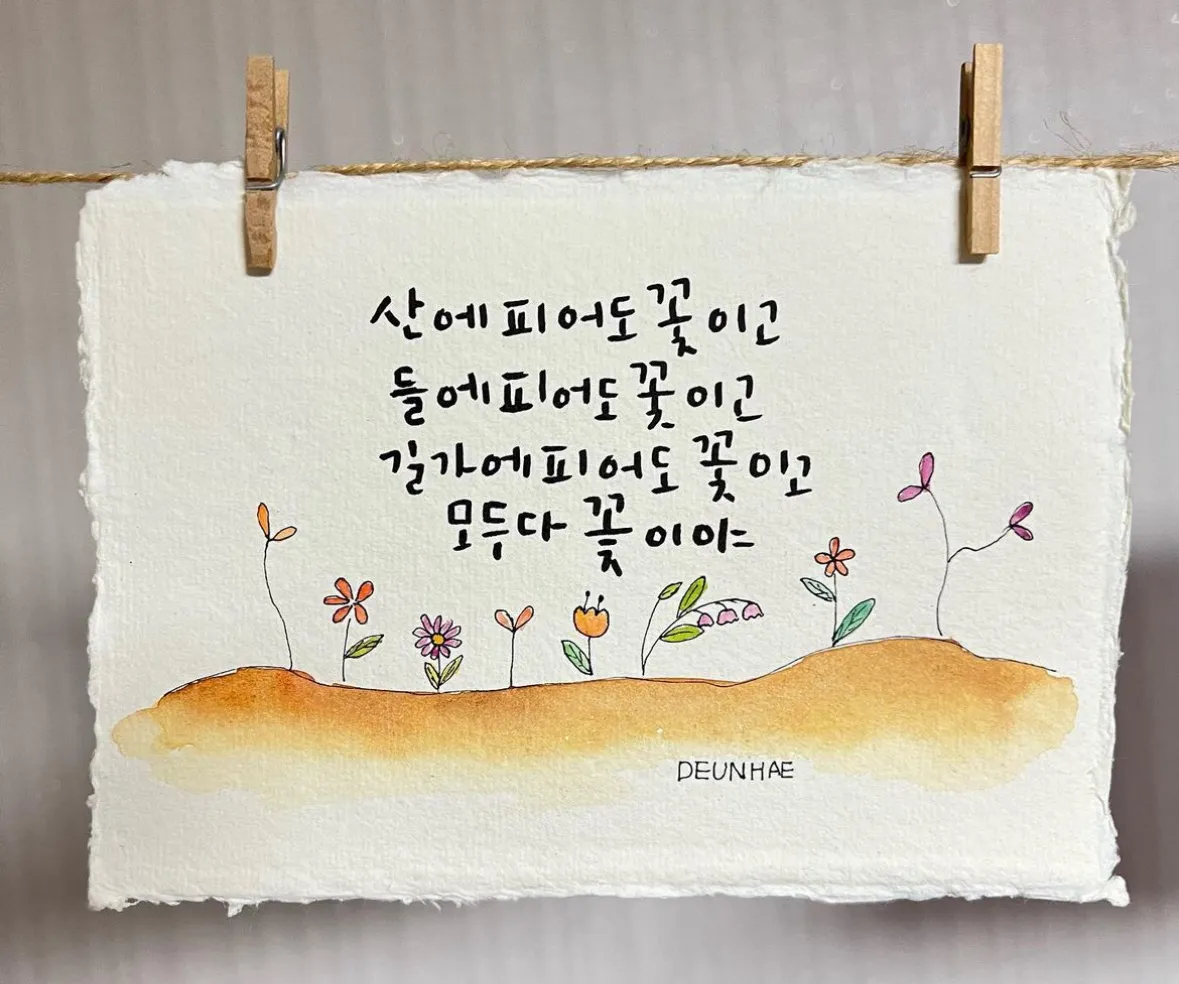 산에 피어도 꽃이고
들에 피어도 꽃이고
길가에 피어도 꽃이고
모두다 꽃이야
DEUNHAE